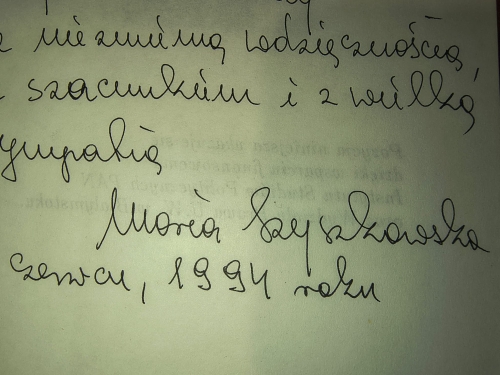 z niezmienną wdzięcznością,
z szacunkiem i z wielką
ympatią
Maria Szyszkowska
czerwcu, 1994 roku